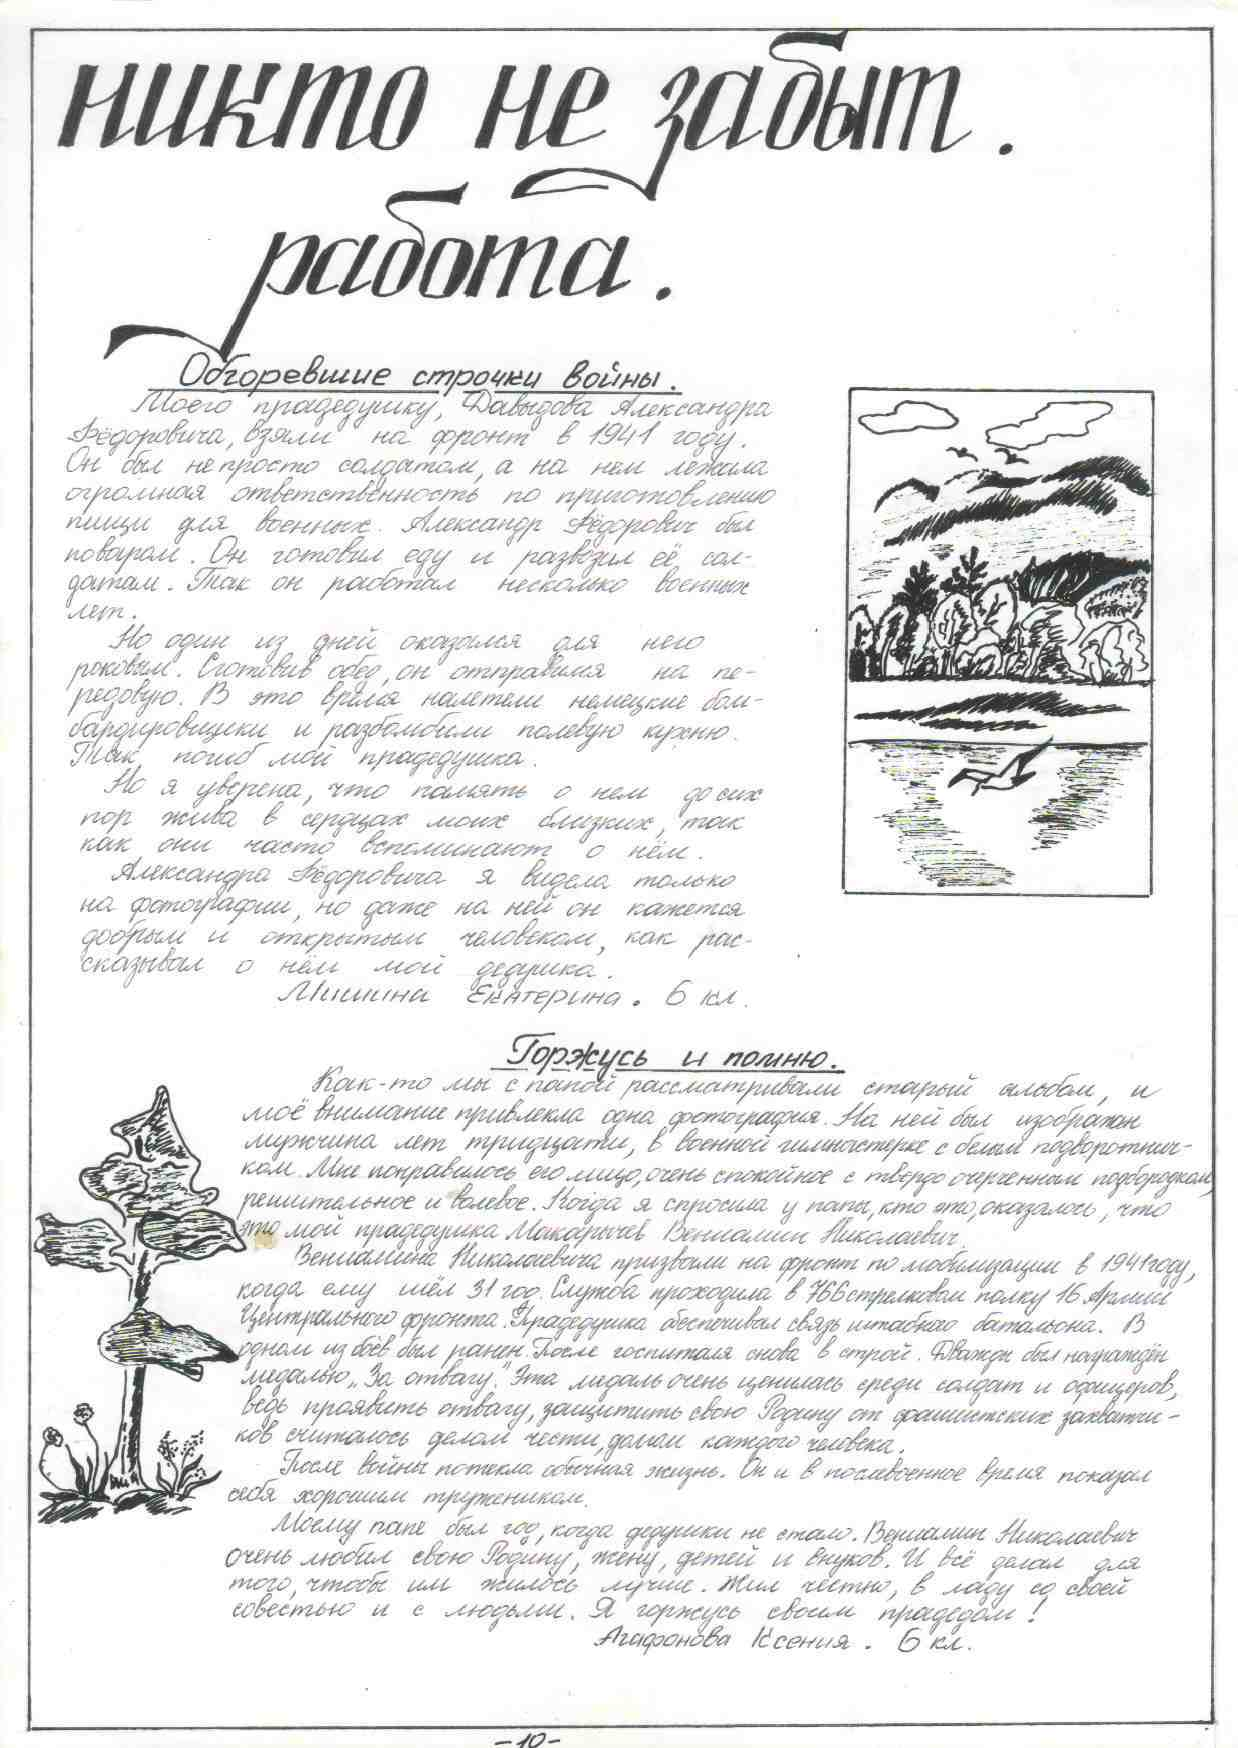 никто не забыт.
работа.
Обгоревшие строчки войны.
Моего прадедушку, Давыдова Александра
Фёдоровича, взяли на фронт в 1941 году.
Он был не просто солдатом, а на нем лежала
огромная ответственность по приготовлению
пищи для военных. Александр Фёдорович был
поваром. Он готовил еду и развозил её сол-
датам. Так он работал несколько военных
лет.
Но один из дней оказался для него
роковым. Сготовив обед, он отправился на пе-
редовую. В это время налетели немецкие бом-
бардировщики и разбомбили полевую кухню.
Так погиб мой прадедушка.
Но я уверена, что память о нем до сих
пор жива в сердцах моих близких, так
как они часто вспоминают о нём.
Александра Фёдоровича я видела только
на фотографии, но даже на ней он кажется
добрым и открытым человеком, как рас-
сказывал о нём мой дедушка.
Мишина Екатерина. 6 кл.
Горжусь и помню.
Как-то мы с папой рассматривали старый альбом, и
моё внимание привлекла одна фотография. На ней был изображен
мужчина лет тридцати, в военной гимнастерке с белым подворотнич-
ком. Мне понравилось его лицо, очень спокойное с твердо очерченным подбородком,
решительное и волевое. Когда я спросила у папы, кто это, оказалось, что
это мой прадедушка Макарычев Вениамин Николаевич.
Вениамина Николаевича призвали на фронт по мобилизации в 1941 году,
когда ему шёл 31 год. Служба проходила в 766 стрелковом полку 16 Армии
Центрального фронта. Прадедушка обеспечивал связь штабного батальона. В
одном из боёв был ранен. После госпиталя снова в строй. Дважды был награждён
медалью „За отвагу". Эта медаль очень ценилась среди солдат и офицеров,
ведь проявить отвагу, защитить свою Родину от фашистских захватчи-
ков считалось делом чести, долгом каждого человека.
После войны потекла обычная жизнь. Он и в послевоенное время показал
себя хорошим тружеником.
Моему папе был год, когда дедушки не стало. Вениамин Николаевич
очень любил свою Родину, жену, детей и внуков. И всё делал для
того, чтобы им жилось лучше. Жил честно, в ладу со своей
совестью и с людьми. Я горжусь своим прадедом!
Агафонова Ксения. 6 кл.
-10-